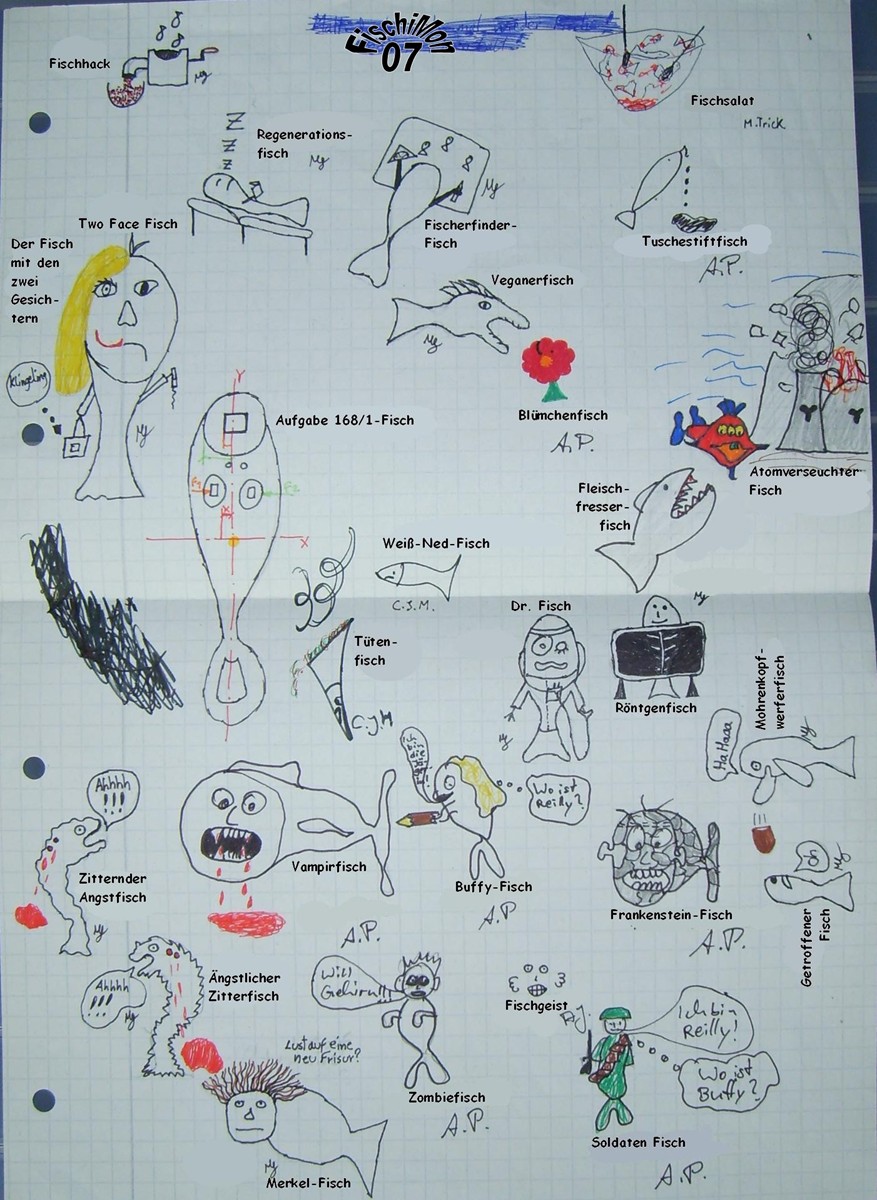 FischiMon
07
Fischhack
My
Fischsalat
M.Trick
Z
Z
Z
Regenerations-
fisch
My
My
Fischerfinder-
Fisch
Tuschestiftfisch
A.P.
Two Face Fisch
Der Fisch
mit den
zwei
Gesich-
tern
Klingeling
My
Veganerfisch
My
Blümchenfisch
A.P.
Atomverseuchter
Fisch
Y
Aufgabe 168/1-Fisch
X
Fleisch-
fresser-
fisch
Weiß-Ned-Fisch
C.J.M.
Tüten-
fisch
C.J.M
Dr. Fisch
My
My
Röntgenfisch
Mohrenkopf-
werferfisch
My
Ha Haaa
Ahhhh
!!!
Zitternder
Angstfisch
My
Vampirfisch
A.P.
Ich
bin
die
Wo ist
Reilly?
Buffy-Fisch
A.P
Frankenstein-Fisch
A.P.
Oh
My
Getroffener
Fisch
Ahhhh
!!!
My
Ängstlicher
Zitterfisch
Will
Gehirn!!!
Zombiefisch
A.P.
Fischgeist
R.J.
Ich bin
Reilly!
Wo ist
Buffy?
Soldaten Fisch
A.P.
Lust auf eine
neu Frisur?
My
Merkel-Fisch